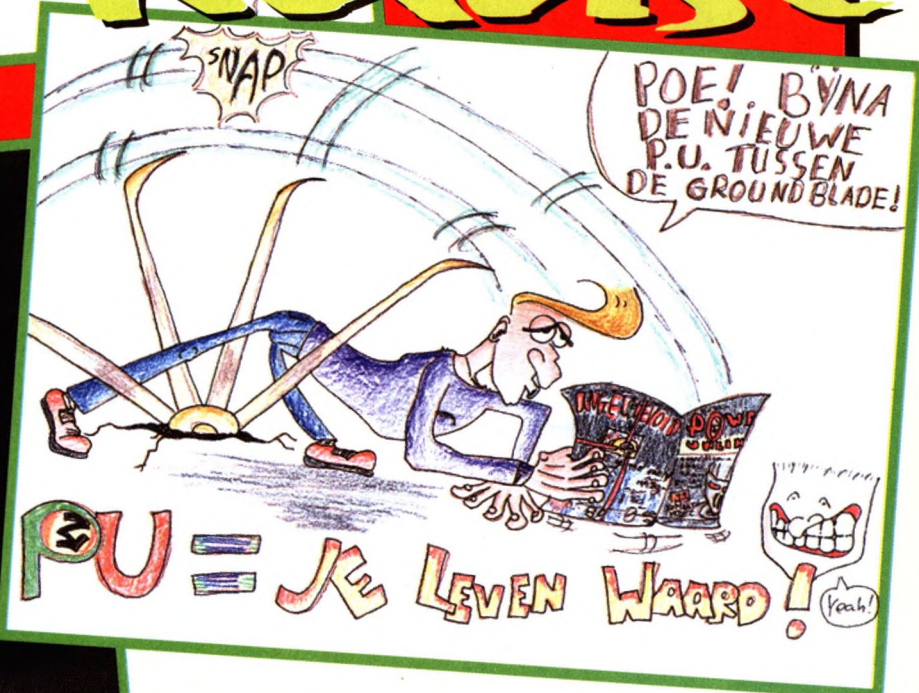 SNAP
POE! BŸNA
DE NIEUWE
P.U. TUSSEN
DE GROUNDBLADE!
PU = JE LEVEN WAARD!
Yeah!